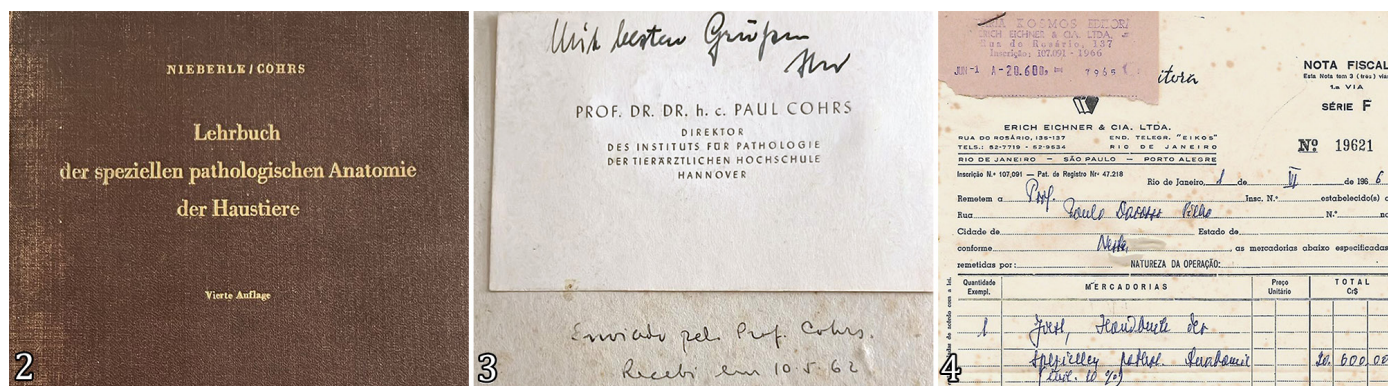 NIEBERLE/COHRS
Lehrbuch
der speziellen pathologischen Anatomie
der Haustiere
Vierte Auflage
2
Mit besten Grüßen
PROF. DR. DR. h. c. PAUL COHRS
DIREKTOR
DES INSTITUTS FÜR PATHOLOGIE
DER TIERÄRZTLICHEN HOCHSCHULE
HANNOVER
Enviado pelo Prof. Cohrs.
Recebi em 10.5.62
3
KOSMOS EDITORA
ERICH EICHNER & CIA. LTDA.
Rua do Rosário, 137
Inscrição, 107.091 - 1966
JUN-1 A-20.600,
NOTA FISCAL
Esta Nota tem 3 (três) vias
1.a VIA
SÉRIE F
Nº 19621
ERICH EICHNER & CIA. LTDA.
RUA DO ROSÁRIO, 135-137 END. TELEGR. "EIKOS"
TELS.: 52-7719 - 52-9534 RIO DE JANEIRO
RIO DE JANEIRO — SÃO PAULO — PORTO ALEGRE
Inscrição N.º 107,091 — Pat. de Registro Nr. 47.218
Rio de Janeiro, 1 de VI de 1966
Remetem a Prof. Insc. N.º estabelecido(s) à
Rua Paulo Dacorso Filho N.º
Cidade de Estado de
conforme Nesta, as mercadorias abaixo especificadas
remetidas por: NATUREZA DA OPERAÇÃO:
Quantidade Exempl. MERCADORIAS Preço Unitário TOTAL Cr$
1 Joest, Handbuch der
speziellen pathol. Anatomie 20.600,00
4